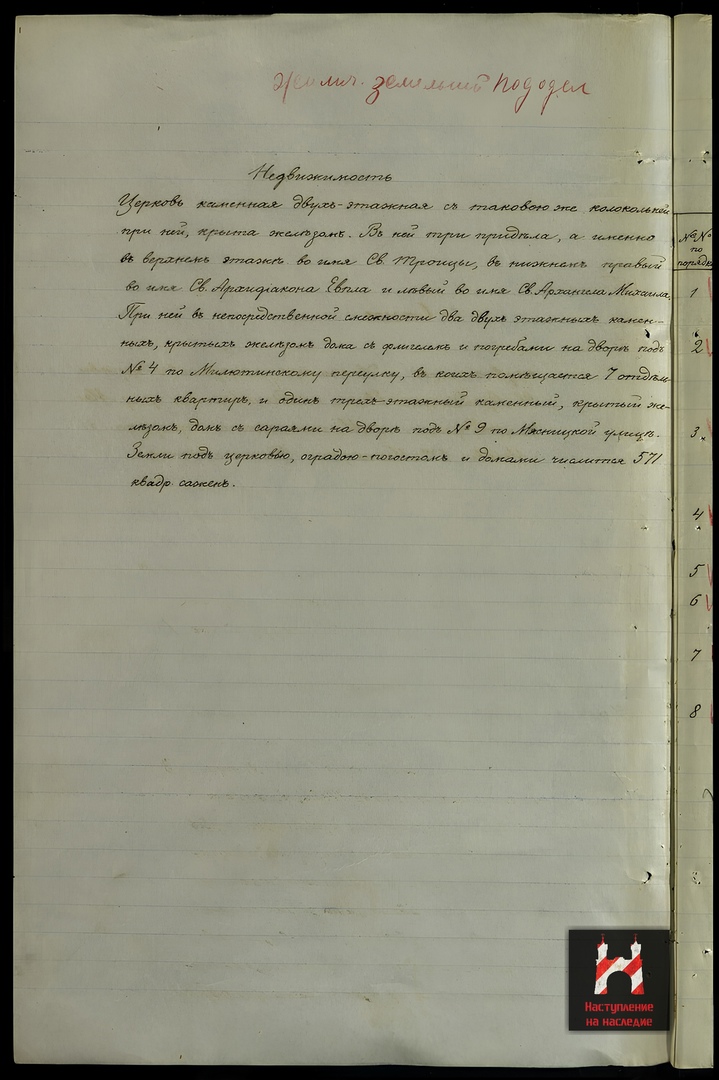 Жилищ. земельный Подотдел
Недвижимость
Церковь каменная двухъ-этажная съ таковою же колокольней
при ней, крыта желѣзомъ. Въ ней три придѣла, а именно
въ верхнемъ этажѣ во имя Св. Троицы, въ нижнемъ правый
во имя Св. Архидіакона Евпла и лѣвый во имя Св. Архангела Михаила.
При ней въ непосредственной смежности два двухъ этажныхъ камен-
ныхъ, крытыхъ желѣзомъ дома съ флигелемъ и погребами на дворѣ подъ
№ 4 по Милютинскому переулку, въ коихъ помѣщается 7 отдѣль
ныхъ квартиръ, и одинъ трехъ-этажный каменный, крытый же-
лѣзомъ, домъ съ сараями на дворѣ подъ № 9 по Мясницкой улицѣ.
Земли подъ церковью, оградою-погостомъ и домами числится 571
квадр сажень.
№№
по
порядк
1
2
3.
4
5
6
7
8
Наступление
на наследие